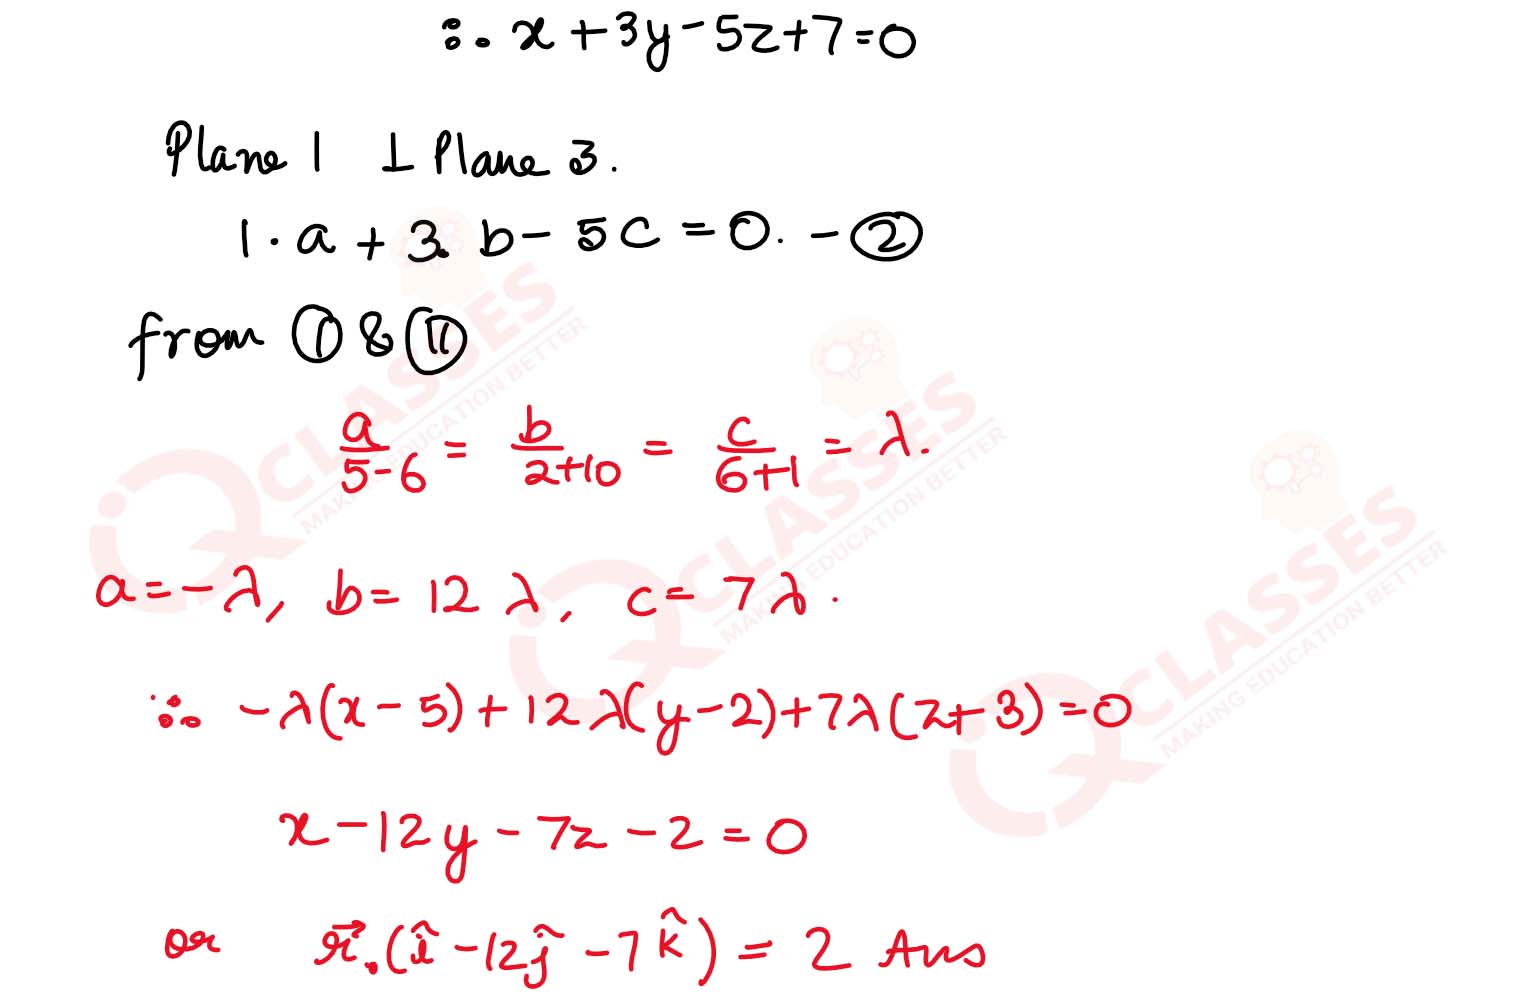 ∴ x + 3y - 5z + 7 = 0
Plane 1 ⊥ Plane 3.
1 · a + 3 b - 5 c = 0. - ②
from ① & ⑪
a/(5-6) = b/(2+10) = c/(6+1) = λ.
a = -λ, b = 12 λ, c = 7 λ.
∴ -λ(x - 5) + 12 λ(y - 2) + 7λ(z + 3) = 0
x - 12y - 7z - 2 = 0
or r⃗.(î - 12ĵ - 7k̂) = 2 Ans
iQ CLASSES
MAKING EDUCATION BETTER
iQ CLASSES
MAKING EDUCATION BETTER
iQ CLASSES
MAKING EDUCATION BETTER